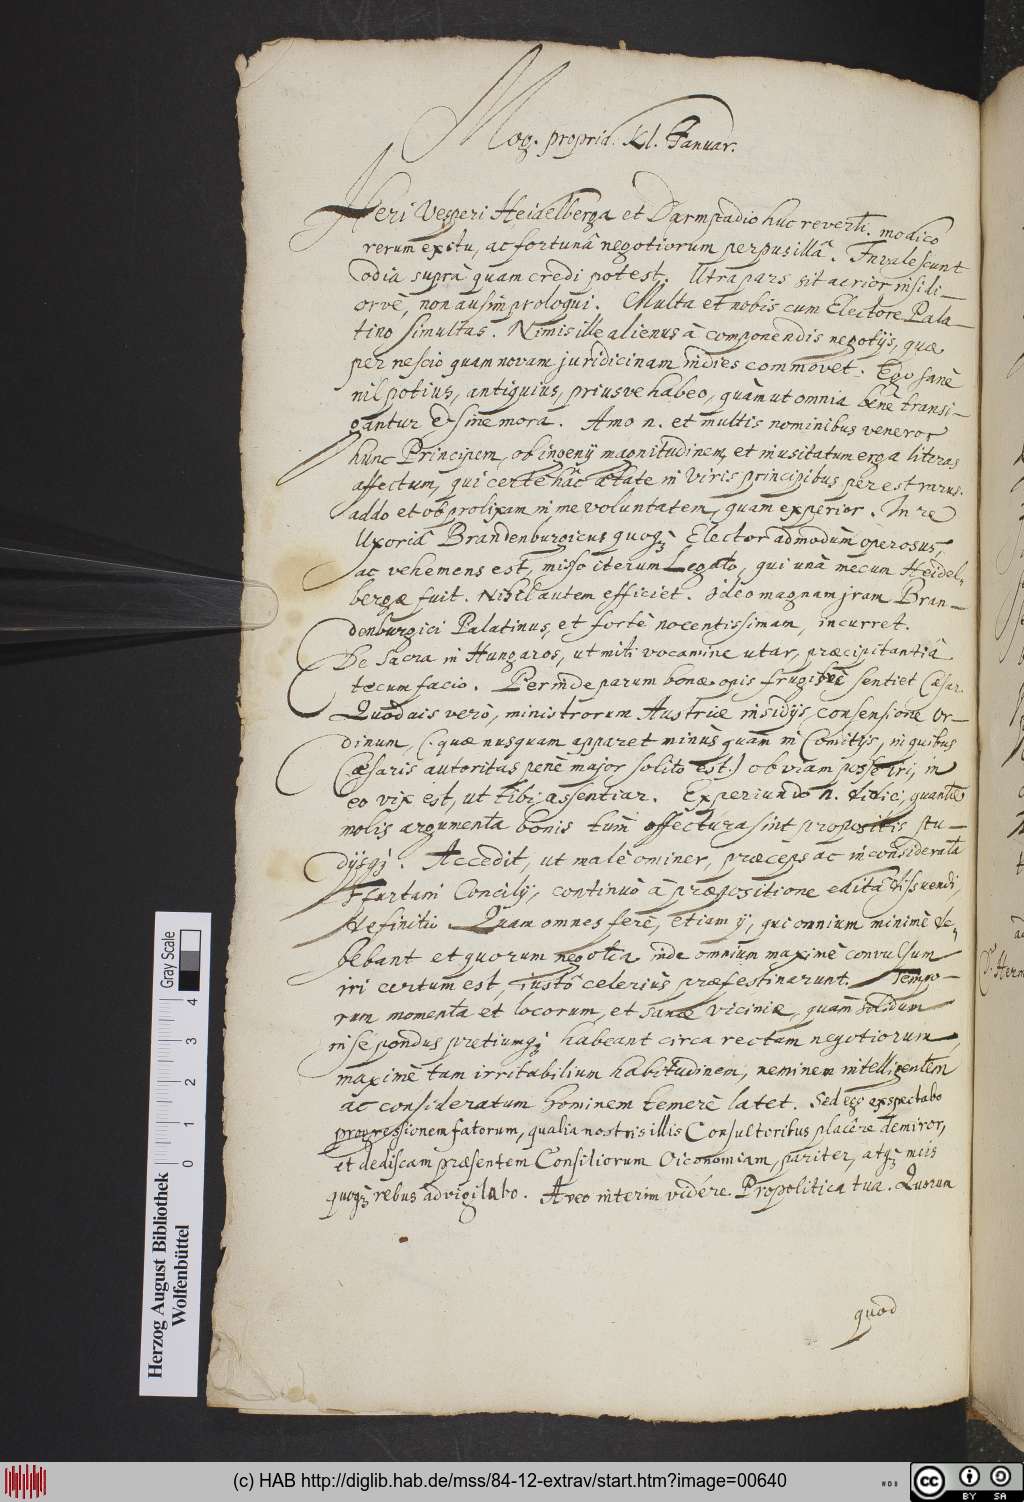 Mog. propria. Kl. Januar.
Heri Vesperi Heidelberga et Darmstadio huc reverti. modico
rerum exitu, ac fortunâ negotiorum perpusillâ. Invalescunt
odia suprà quam credi potest. Utra pars sit acrior insidi-
orve, non ausim prologui. Multa et nobis cum Electore Pala-
tino simultas. Nimis ille alienus â componendis negotijs, quæ
per nescio quam novam juridicinam indies commovet. Ego sanè
nil potius, antiquius, priusve habeo, quàm ut omnia benè transi-
gantur & sine mora. Amo n. et multis nominibus veneror
hunc Principem, ob ingenij magnitudinem, et inusitatum erga literas
affectum, qui certè hâc ætate in Viris principibus per est rarus.
addo et ob prolixam in me voluntatem, quam experior. In re
Uxoriâ Brandenburgicus quoq; Elector admodùm operosus,
ac vehemens est, misso iterum Legato, qui unâ mecum Heidel-
bergæ fuit. Nihil autem efficiet. Ideo magnam iram Bran-
denburgici Palatinus, et fortè nocentissimam, incurret.
De Sacra in Hungaros, ut miti vocamine utar, præcipitantiâ
tecum facio. Perinde parum bonæ opis frugisvè sentiet Cæsar.
Quòd ais verò, ministrorum Austriæ insidijs, consensione Or-
dinum, (quæ nusquam apparet minùs quàm in Comitijs, in quibus
Cæsaris autoritas penè major solito est.) obviam posse iri, in
eo vix est, ut tibi assentiar. Experiundo n. didici, quantæ
molis argumenta bonis tùm effectura sint propositis stu-
dijsq;. Accedit, ut malè ominer, præceps ac inconsiderata
furtim Concilij, continuò â præpositione edita dissuendi,
definitio. Quam omnes ferè, etiam ij, qui omnium minimè de-
bebant et quorum negotia inde omnium maximè convulsum
iri certum est, iustò celeriùs præfestinarunt. Tempo-
rum momenta et locorum, et sanæ viciniæ, quàm solidum
in se pondus pretiumq; habeant circa rectam negotiorum,
maximè tam irritabilium habitudinem, neminem intelligentem
ac consideratum hominem temerè latet. Sed ego exspectabo
progressionem fatorum, qualia nostris illis Consultoribus placêre demiror,
et dediscam præsentem Consiliorum Oiconomiam, pariter, atq; meis
quoq; rebus advigilabo. Aveo interim vidére Propolitica tua. Quorum
quod
Herzog August Bibliothek
Wolfenbüttel
Gray Scale
0 1 2 3 4
(c) HAB http://diglib.hab.de/mss/84-12-extrav/start.htm?image=00640
WDB
cc BY SA